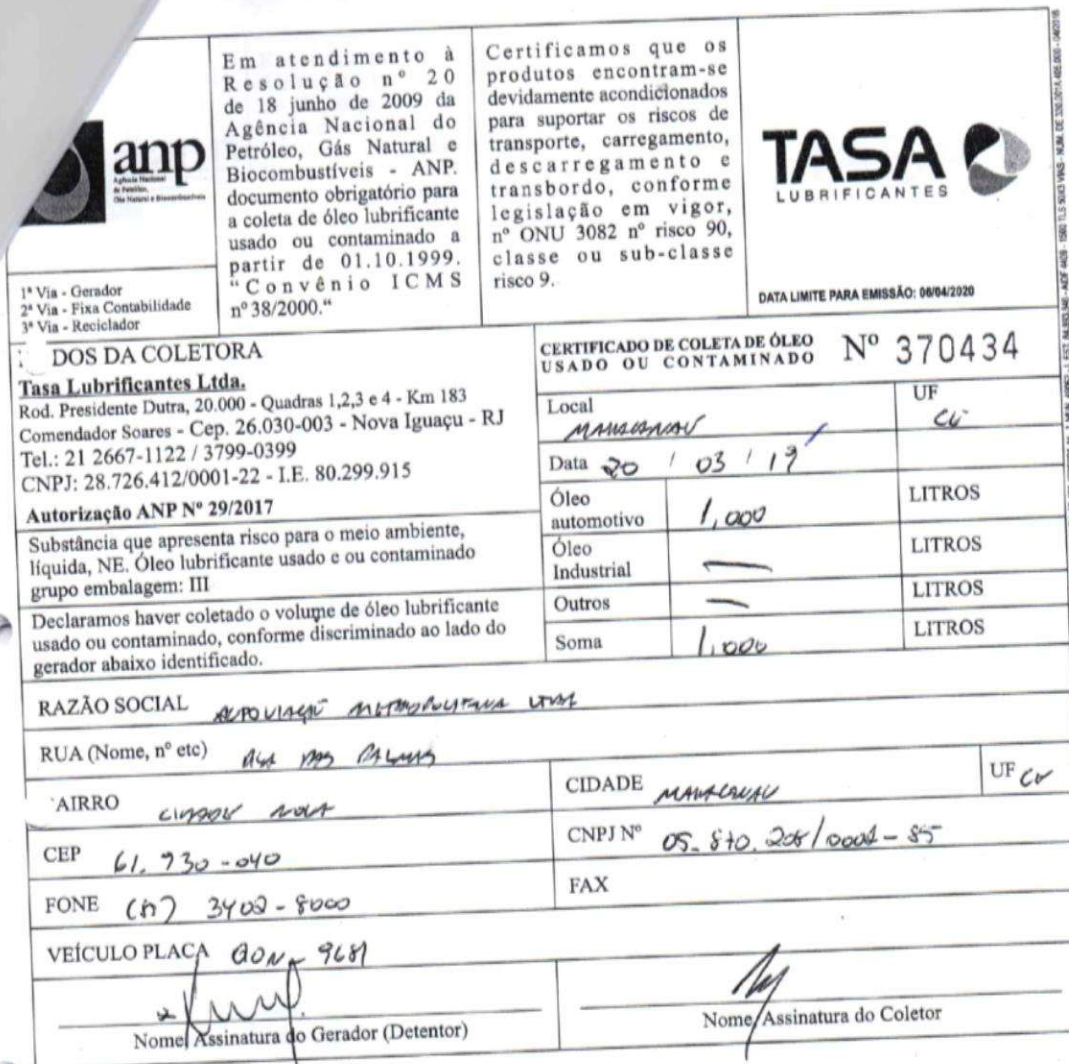 anp
Agência Nacional
do Petróleo,
Gás Natural e Biocombustíveis
1ª Via - Gerador
2ª Via - Fixa Contabilidade
3ª Via - Reciclador
Em atendimento à
Resolução nº 20
de 18 junho de 2009 da
Agência Nacional do
Petróleo, Gás Natural e
Biocombustíveis - ANP.
documento obrigatório para
a coleta de óleo lubrificante
usado ou contaminado a
partir de 01.10.1999.
“Convênio ICMS
nº 38/2000.“
Certificamos que os
produtos encontram-se
devidamente acondicionados
para suportar os riscos de
transporte, carregamento,
descarregamento e
transbordo, conforme
legislação em vigor,
nº ONU 3082 nº risco 90,
classe ou sub-classe
risco 9.
TASA
LUBRIFICANTES
DATA LIMITE PARA EMISSÃO: 06/04/2020
DOS DA COLETORA
Tasa Lubrificantes Ltda.
Rod. Presidente Dutra, 20.000 - Quadras 1,2,3 e 4 - Km 183
Comendador Soares - Cep. 26.030-003 - Nova Iguaçu - RJ
Tel.: 21 2667-1122 / 3799-0399
CNPJ: 28.726.412/0001-22 - I.E. 80.299.915
Autorização ANP Nº 29/2017
Substância que apresenta risco para o meio ambiente,
líquida, NE. Óleo lubrificante usado e ou contaminado
grupo embalagem: III
Declaramos haver coletado o volume de óleo lubrificante
usado ou contaminado, conforme discriminado ao lado do
gerador abaixo identificado.
CERTIFICADO DE COLETA DE ÓLEO
USADO OU CONTAMINADO Nº 370434
Local MARACANAU UF CE
Data 20 / 03 / 19
Óleo automotivo 1,000 LITROS
Óleo Industrial — LITROS
Outros — LITROS
Soma 1,000 LITROS
RAZÃO SOCIAL AUTOVIAÇÃO METROPOLITANA LTDA
RUA (Nome, nº etc) RUA DAS PALMAS
AIRRO CIDADE NOVA
CIDADE MARACANAU UF CE
CEP 61.930-040
CNPJ Nº
FONE 3402-8000
FAX
VEÍCULO PLACA 9681
Nome/Assinatura do Gerador (Detentor)
Nome/Assinatura do Coletor